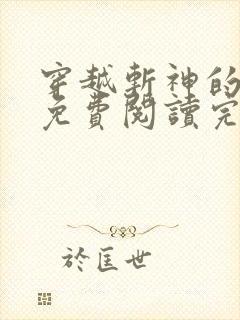 穿越斬神的
免費閱讀完
於匡世